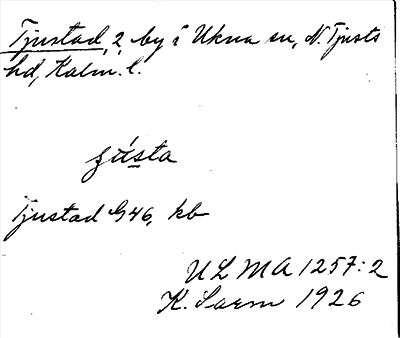 Tjustad, 2, by i Ukna sn, N. Tjusts
hd, Kalm. l.
Tjustad G46, kb
ULMA 1257:2
K. Saem 1926